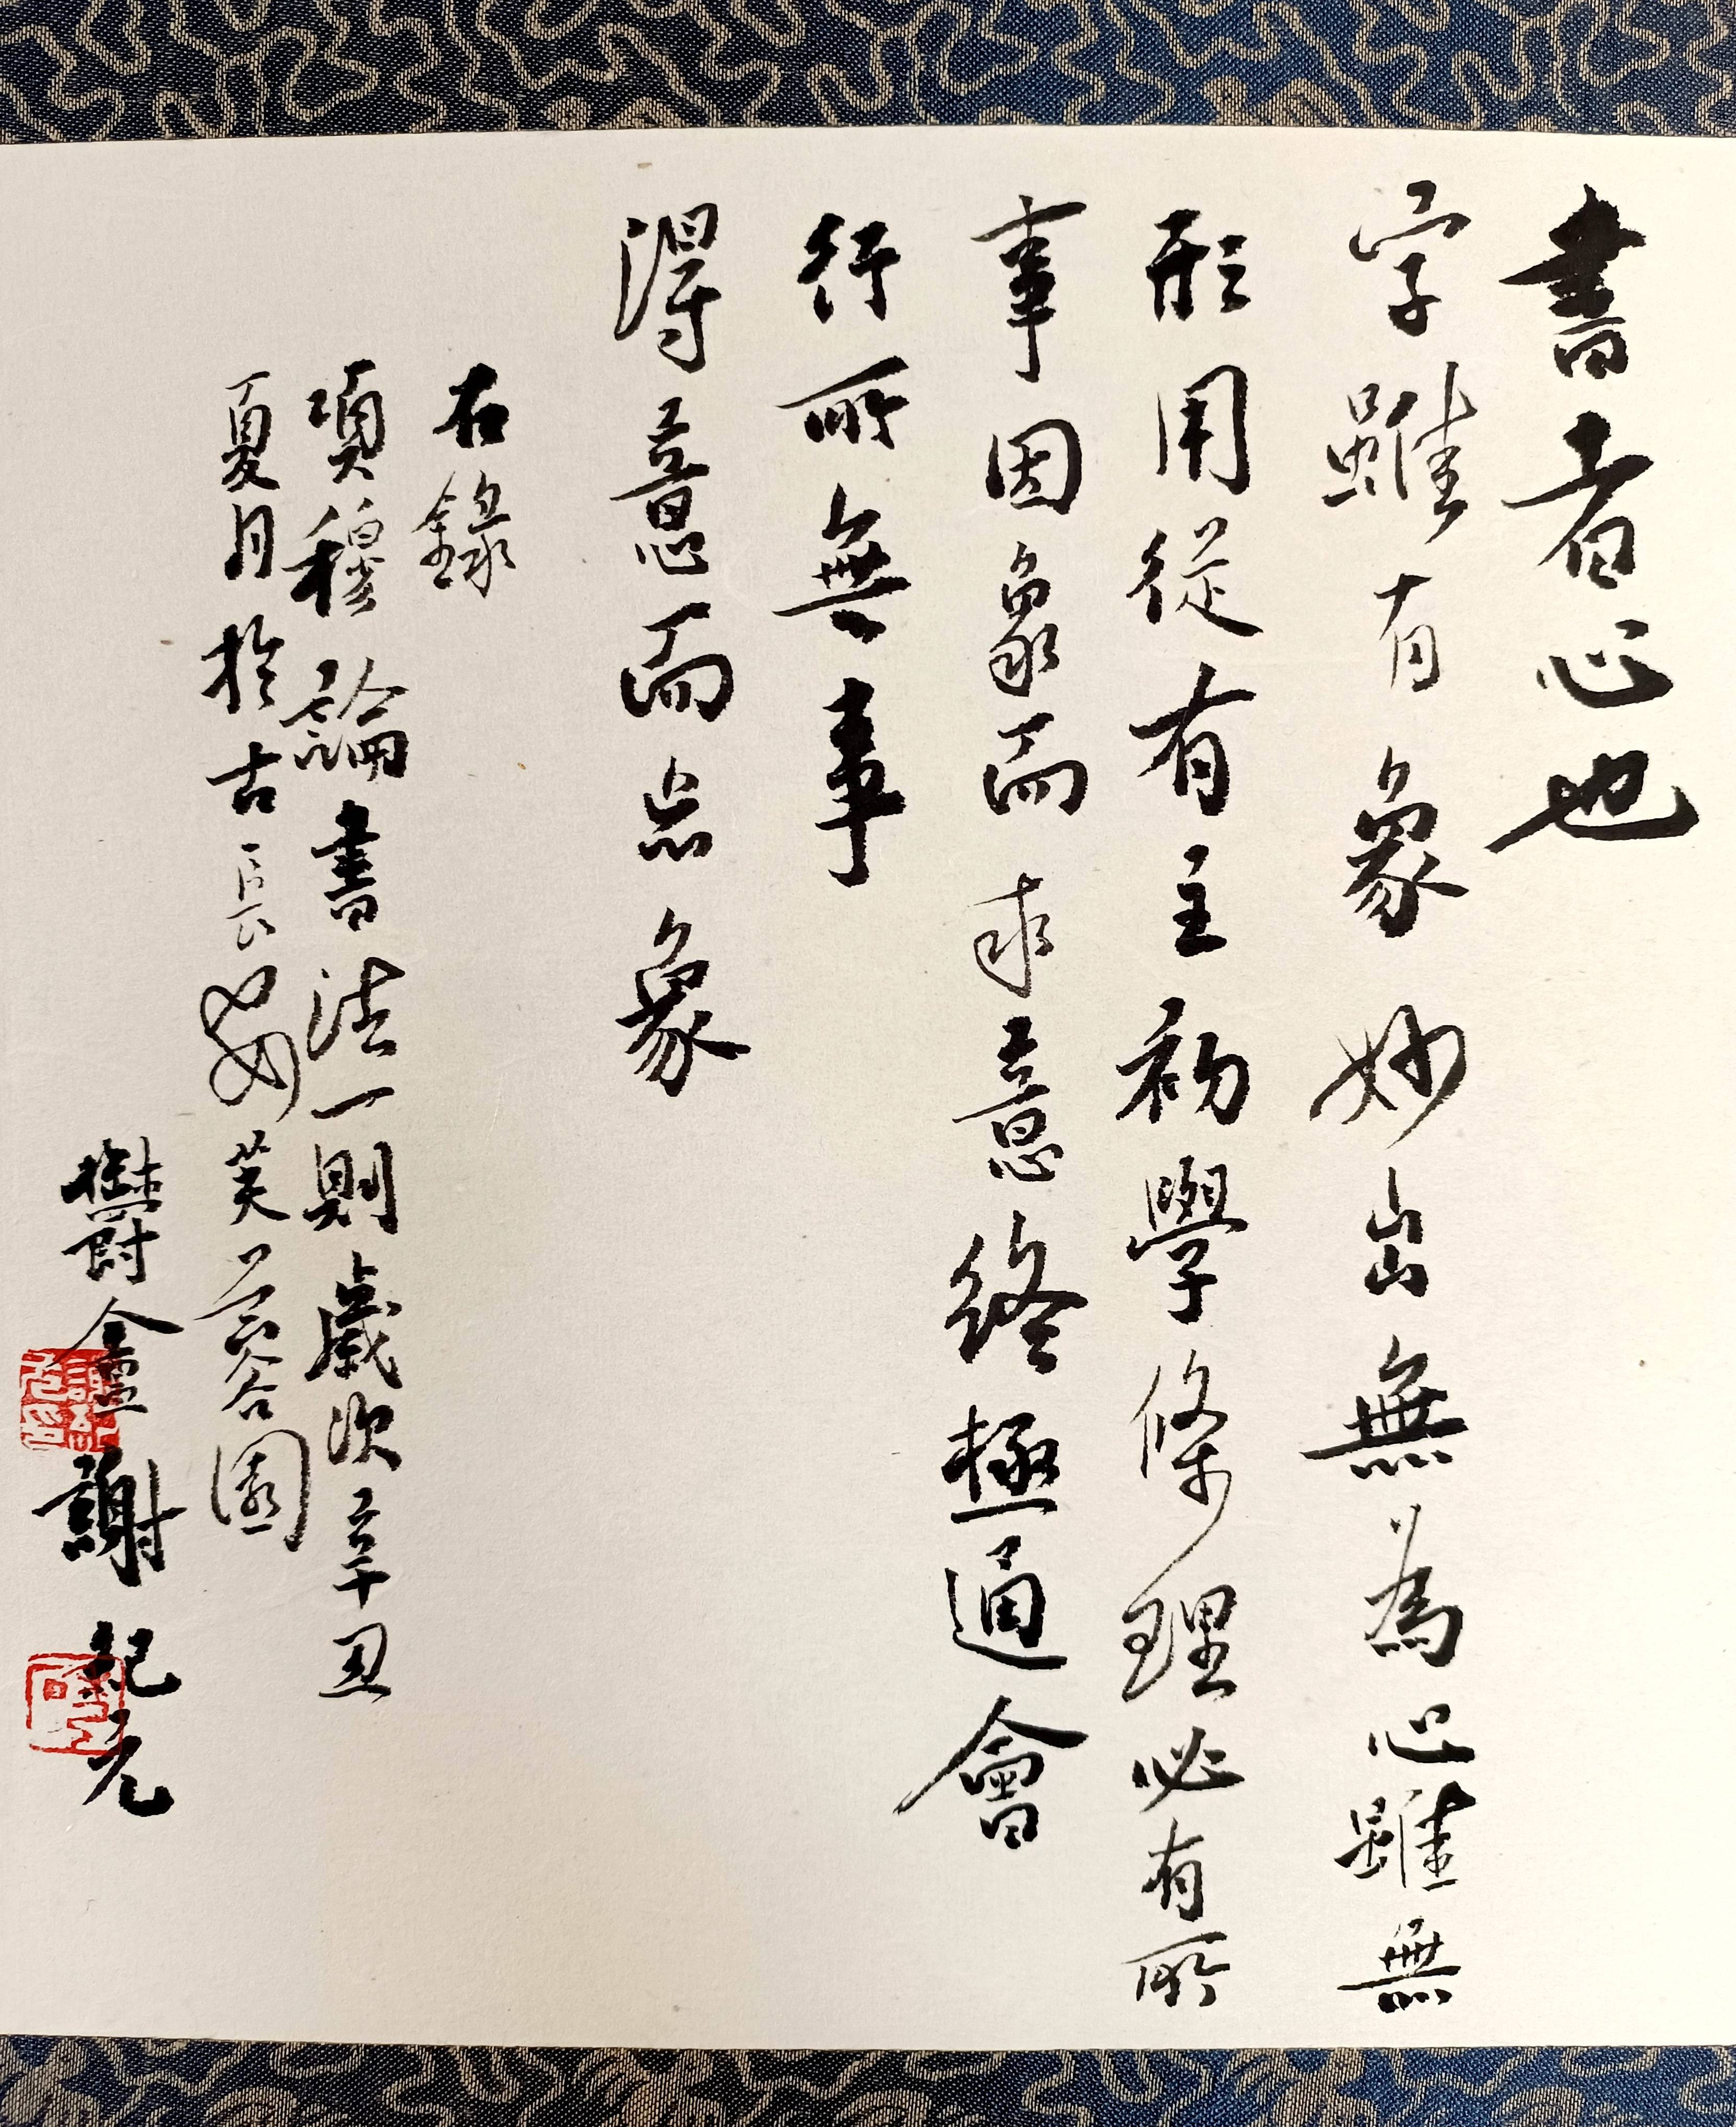 書者心也
字雖有象妙出無為心雖無
形用從有主初學條理必有所
事因象而求意終極通會
行所無事
得意而忘象
右錄
項穆論書法一則歲次辛丑
夏月於古長安芙蓉園
鬱金臺謝紀元